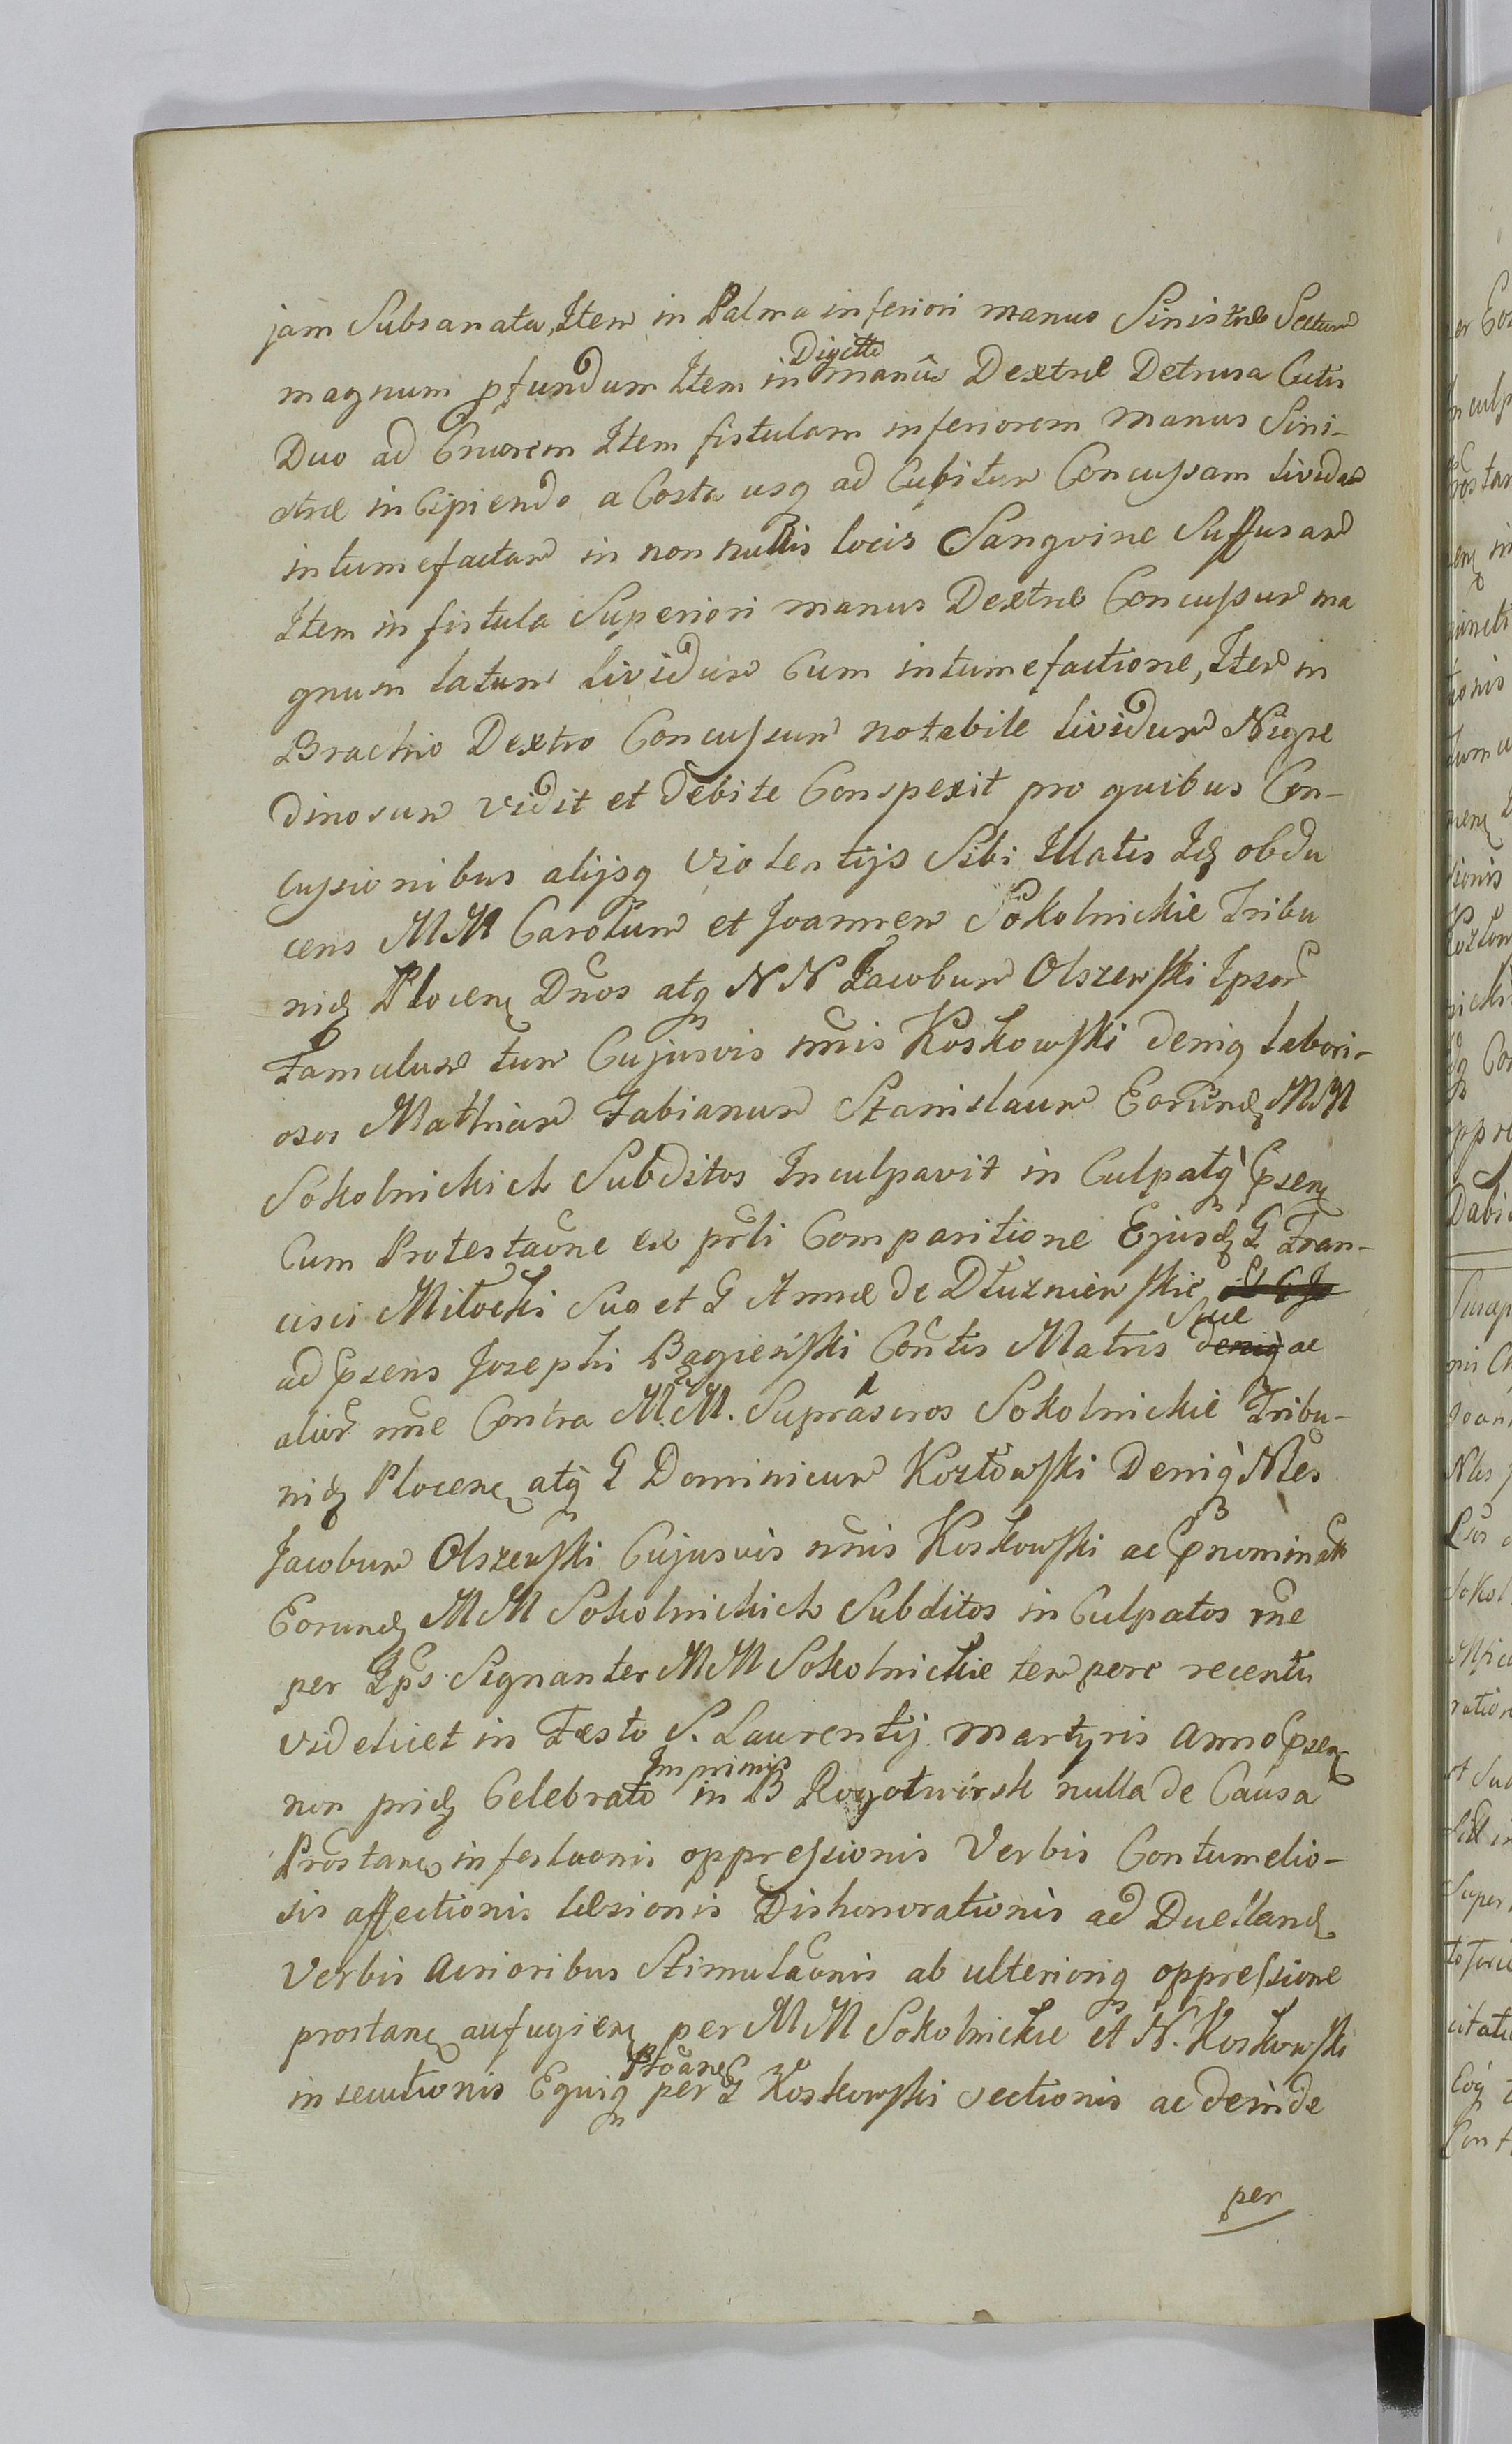 jam Subsanata, Item in Palma inferiori manus Sinistræ Sectum
magnum pfundum Item in Digitto manûs Dextræ Detrusa Cutis
Duo ad Cruorem Item fistulam inferiorem manus Sini-
stræ incipiendo a Costa usq ad Cubitum Concussam lividam
intumefactam in non nullis locis Sangvine Suffusam
Item in fistula Superiori manus Dextræ Concussum ma
gnum latum lividum Cum intumefactione, Item in
Brachio Dextro Concussum notabile lividum Nigre
dinosum vidit et debite Conspexit pro quibus Con-
cussionibus alijsq violentijs Sibi Illatis Idq obdu
cens MM Carolum et Joannem Sokolnickie Tribu
nidq Plocenq Dnos atq NN Jacobum Olszewski Ipsor
Famulum tum Cujusvis nnis Koskowski deniq labori-
osos Mathiam Fabianum Stanislaum Eorundq MM
Sokolnickich Subditos Inculpavit in Culpatq psenq
Cum Protestaone ex prli Comparitione Ejusdq G Fran-
cisci Miłocki Suo et G Annæ de Dłuzniewskie
ad psens Josephi Bagieński Contis Matris Suæ deniq ac
alior nne Contra M.M. Suprascros Sokolnickie Tribu-
nidq Plocenq atq G Dominicum Kozłowski Deniq Nles
Jacobum Olszewski Cujusvis nnis Koskowski ac pnominatt
Eorundq MM Sokolnickich Subditos in Culpatos rne
per Ips Signanter MM Sokolnickie tempore recenti
videlicet in Fæsto S. Laurentij martyris anno psenq
non pridq Celebrato Imprimis in B Rogotwórsk nulla de Causa
Prostanq infestaonis oppressionis Verbis Contumelio-
sis affectionis læsionis Dishonorationis ad Duellandq
Verbis acrioribus Stimulaonis ab ulterioriq oppressione
prostanq aufugienq per MM Sokolnickie et N. Koskowski
insecutionis Equiq Ptoanq per G Koskowski sectionis ac deinde
per